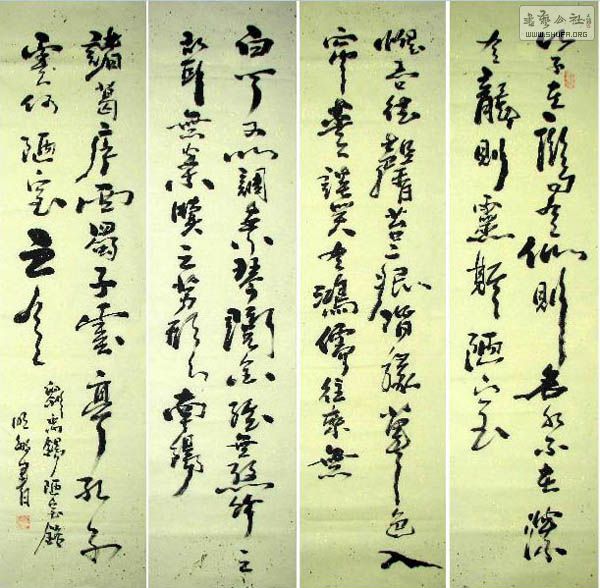 书艺公社
WWW.SHUFA.ORG
山不在高有仙則名水不在深
有龍則靈斯陋室
惟吾德馨苔痕階緣草色入
簾青談笑有鴻儒往來無
白丁可以調素琴閱金經無絲竹之
亂耳無案牘之勞形南陽
諸葛廬西蜀子雲亭孔子
雲何陋室之有
劉禹錫陋室銘
書